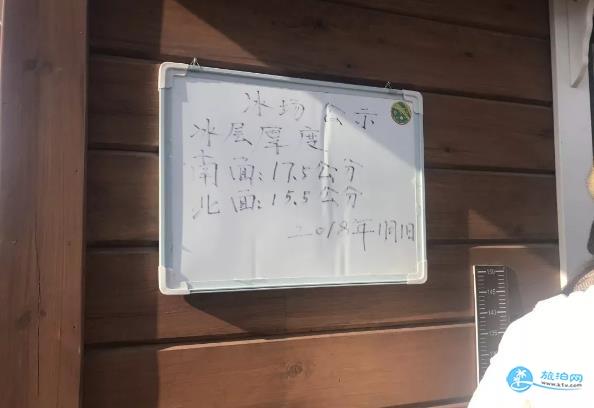 冰场公示
冰层厚度
南面:17.5公分
北面:15.5公分
2018年1月1日
150
145
140
135
旅泊网
www.k1u.com